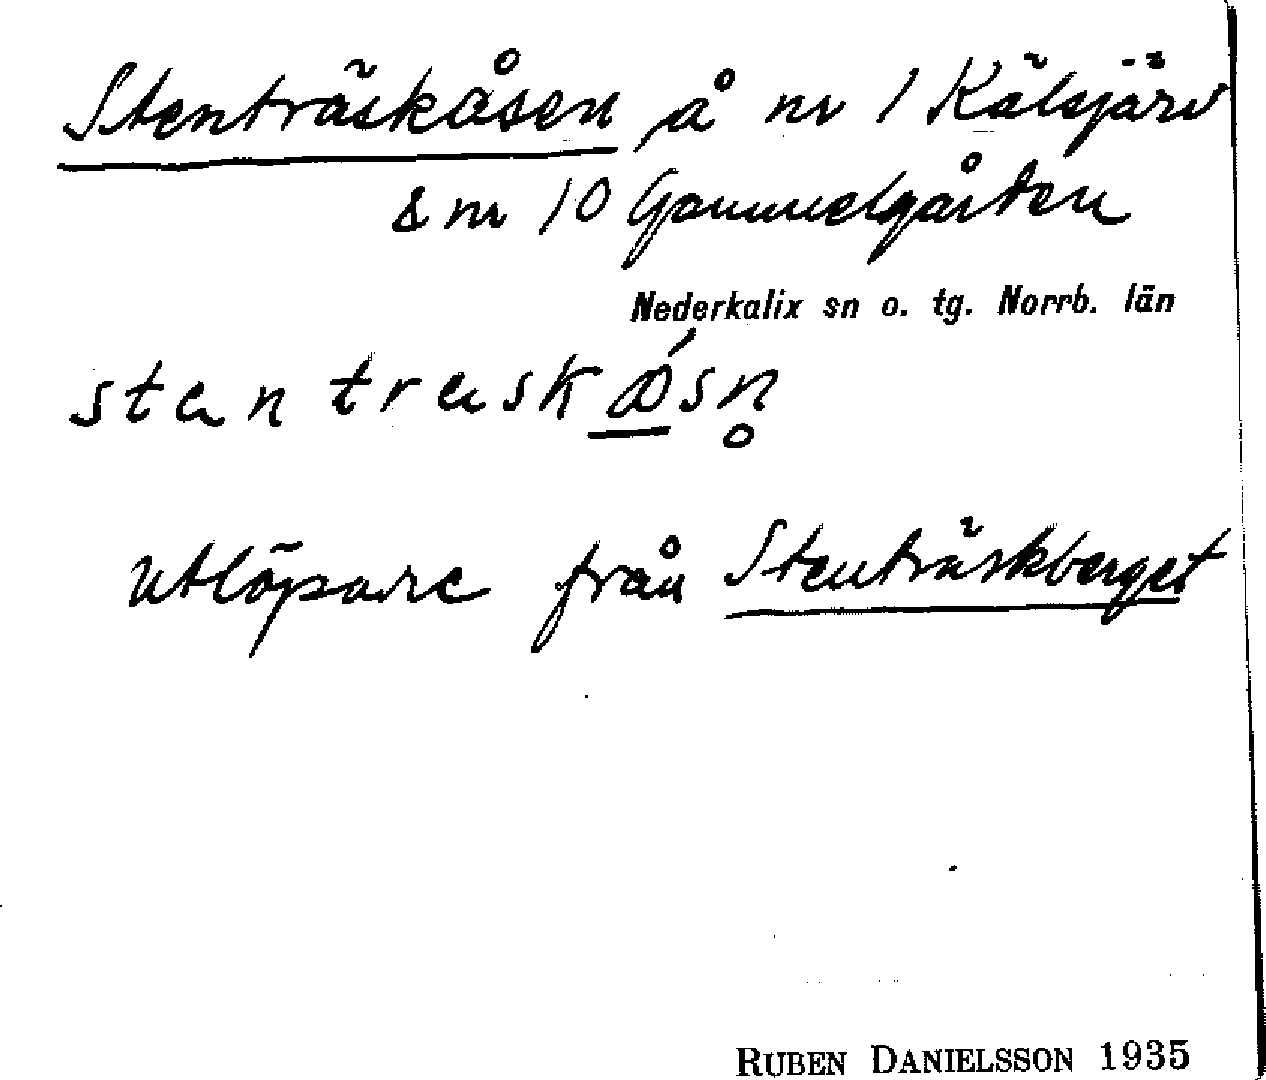 Stenträskåsen å nr 1 Kälsjärv
& nr 10 Gammelgården
Nederkalix sn o. tg. Norrb. län
utlöpare från Stenträskberget
RUBEN DANIELSSON 1935